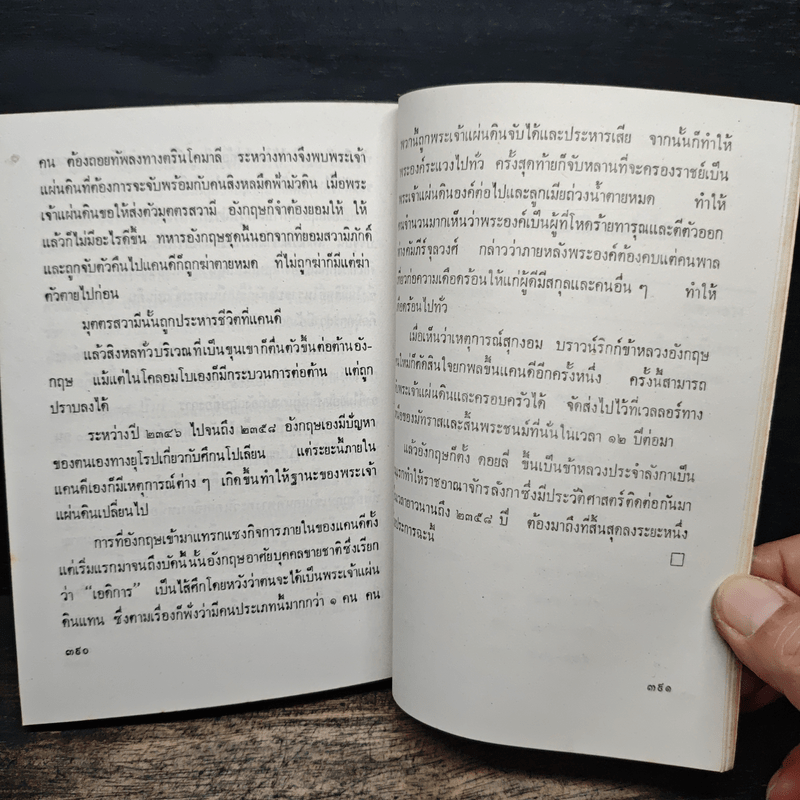 คน ต้องถอยทัพลงทางตรินโคมาลี ระหว่างทางจึงพบพระเจ้า
แผ่นดินที่ต้องการจะจับพร้อมกับคนสิงหลมืดฟ้ามัวดิน เมื่อพระ
เจ้าแผ่นดินขอให้ส่งตัวมุตตรสวามี อังกฤษก็จำต้องยอมให้ ให้
แล้วก็ไม่มีอะไรดีขึ้น ทหารอังกฤษชุดนั้นนอกจากที่ยอมสวามิภักดิ์
และถูกจับตัวคืนไปแคนดีก็ถูกฆ่าตายหมด ที่ไม่ถูกฆ่าก็มีแต่ฆ่า
ตัวตายไปก่อน
มุตตรสวามีนั้นถูกประหารชีวิตที่แคนดี
แล้วสิงหลทั่วบริเวณที่เป็นขุนเขาก็ตื่นตัวขึ้นต่อต้านอัง-
กฤษ แม้แต่ในโคลอมโบเองก็มีกระบวนการต่อต้าน แต่ถูก
ปราบลงได้
ระหว่างปี ๒๓๔๖ ไปจนถึง ๒๓๕๘ อังกฤษเองมีปัญหา
ของตนเองทางยุโรปเกี่ยวกับศึกนโปเลียน แต่ระยะนี้ภายใน
แคนดีเองก็มีเหตุการณ์ต่าง ๆ เกิดขึ้นทำให้ฐานะของพระเจ้า
แผ่นดินเปลี่ยนไป
การที่อังกฤษเข้ามาแทรกแซงกิจการภายในของแคนดีตั้ง
แต่เริ่มแรกมาจนถึงบัดนี้นั้นอังกฤษอาศัยบุคคลขายชาติซึ่งเรียก
ว่า “เอดิการ” เป็นไส้ศึกโดยหวังว่าตนจะได้เป็นพระเจ้าแผ่น
ดินแทน ซึ่งตามเรื่องก็พังว่ามีคนประเภทนี้มากกว่า ๑ คน คน
๓๙๐
พวกนี้ถูกพระเจ้าแผ่นดินจับได้และประหารเสีย จากนั้นก็ทำให้
พระองค์ระแวงไปทั่ว ครั้งสุดท้ายก็จับหลานที่จะครองราชย์เป็น
พระเจ้าแผ่นดินองค์ต่อไปและลูกเมียถ่วงน้ำตายหมด ทำให้
คนจำนวนมากเห็นว่าพระองค์เป็นผู้ที่โหดร้ายทารุณและตีตัวออก
ห่างคัมภีร์จุลวงศ์ กล่าวว่าภายหลังพระองค์ต้องคบแต่คนพาล
ต่อความเดือดร้อนให้แก่ผู้ดีมีสกุลและคนอื่น ๆ ทำให้
เดือดร้อนไปทั่ว
เมื่อเห็นว่าเหตุการณ์สุกงอม บราวน์ริกก์ข้าหลวงอังกฤษ
คนใหม่ก็ตัดสินใจยกพลขึ้นแคนดีอีกครั้งหนึ่ง ครั้งนี้สามารถ
จับพระเจ้าแผ่นดินและครอบครัวได้ จัดส่งไปไว้ที่เวลลอร์ทาง
เหนือของมัทราสและสิ้นพระชนม์ที่นั่นในเวลา ๑๒ ปีต่อมา
แล้วอังกฤษก็ตั้ง ดอยลี่ ขึ้นเป็นข้าหลวงประจำลังกาเป็น
คนแรกทำให้ราชอาณาจักรลังกาซึ่งมีประวัติศาสตร์ติดต่อกันมา
เวลายาวนานถึง ๒๓๕๘ ปี ต้องมาถึงที่สิ้นสุดลงระยะหนึ่ง
ประการฉะนี้
๓๙๑